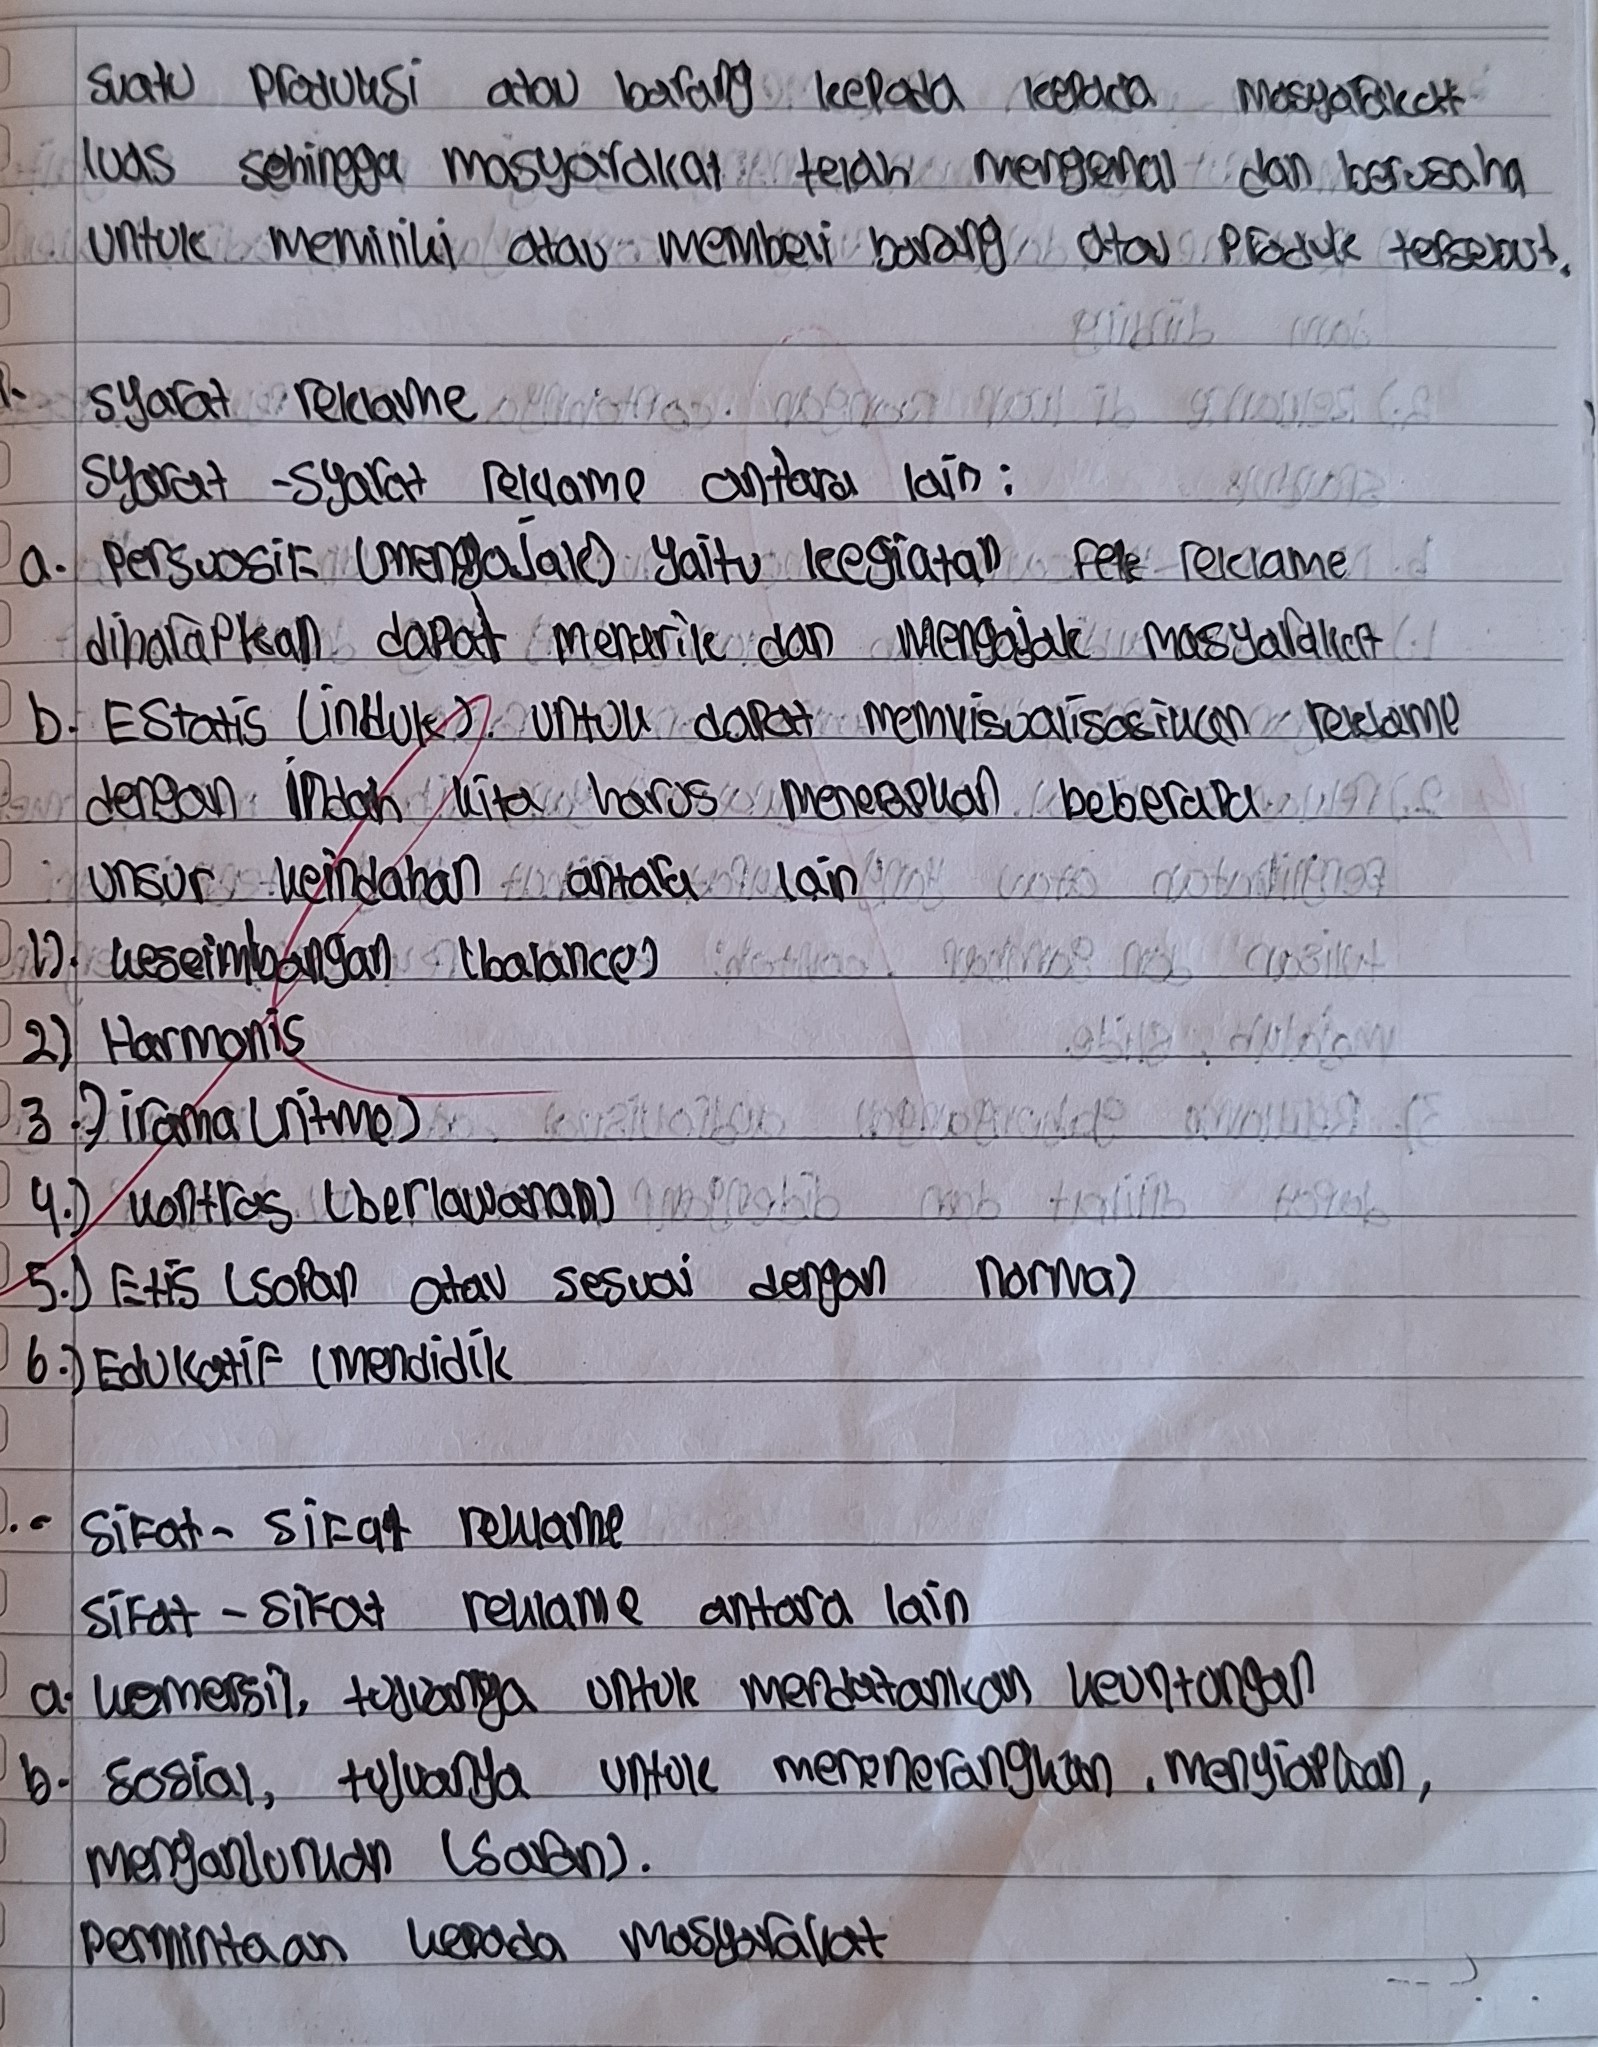 suatu Produksi atau barang kepada kepada masyarakat
luas sehingga masyarakat telah mengenal dan berusaha
untuk memiliki atau membeli barang atau Produk tersebut.
syarat reklame
syarat - syarat reklame antara lain :
a. Persuasif (mengajak) yaitu kegiatan reklame
diharapkan dapat menarik dan mengajak masyarakat
b. EStatis (induk). untuk dapat memvisualisasikan reklame
dengan indah kita harus menerapkan beberapa
unsur keindahan antara lain
1). keseimbangan (balance)
2) Harmonis
3.) irama (ritme)
4.) kontras (berlawanan)
5.) Etis (sopan atau sesuai dengan norma)
6.) Edukatif (mendidik
Sifat - Sifat reklame
Sifat - Sifat reklame antara lain
a. komersil, tujuanya untuk mendatankan keuntungan
b. Sosial, tujuanya untuk menenerangkan, menyiapkan,
menganjurkan (saran).
Permintaan kepada masyarakat